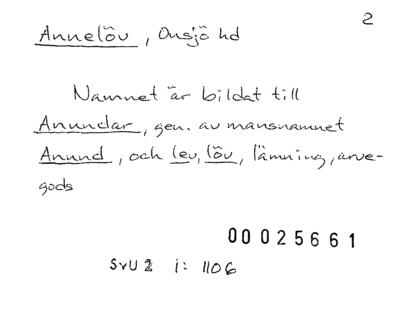 2
Annelöv, Onsjö hd
Namnet är bildat till
Anundar, gen. av mansnamnet
Anund, och lev, löv, lämning, arve-
gods
00025661
SvU 2 i: 1106